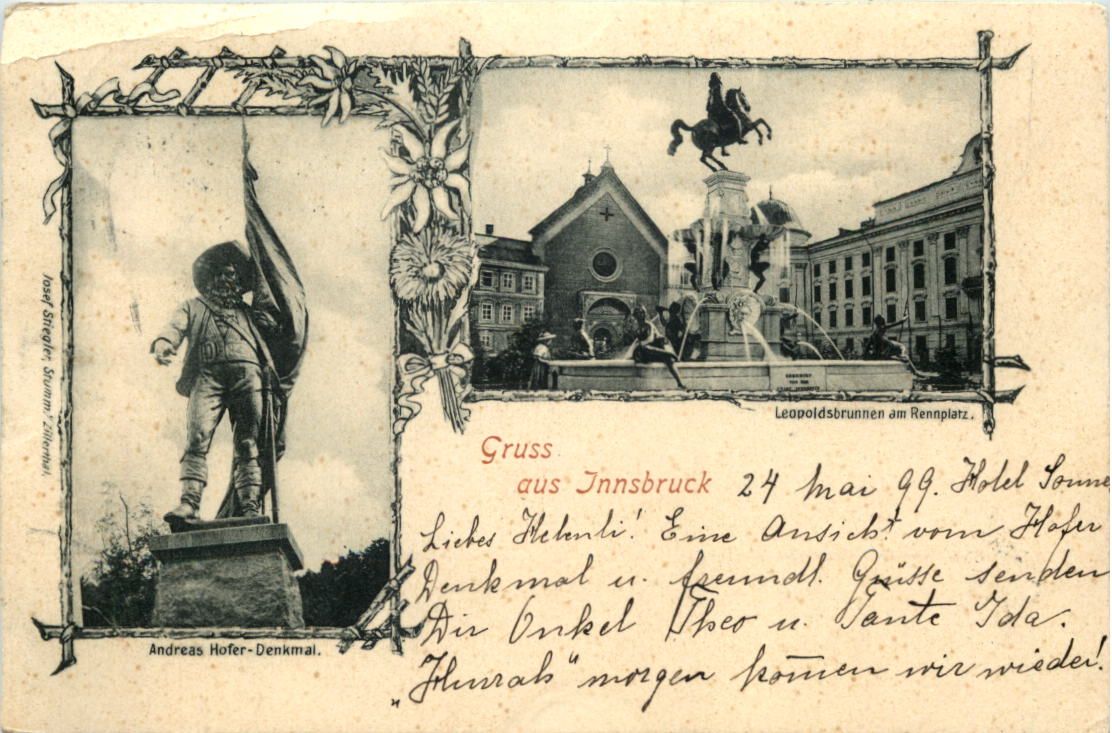 Josef Stiegler, Stumm i/ Zillerthal.
Andreas Hofer-Denkmal.
Leopoldsbrunnen am Rennplatz.
Gruss
aus Innsbruck
24 Mai 99. Hotel Sonne
Liebes Helenli! Eine Ansicht vom Hofer
Denkmal u. freundl. Grüsse senden
Dir Onkel Theo u. Tante Ida.
„Hurrah“ morgen kom̄en wir wieder!